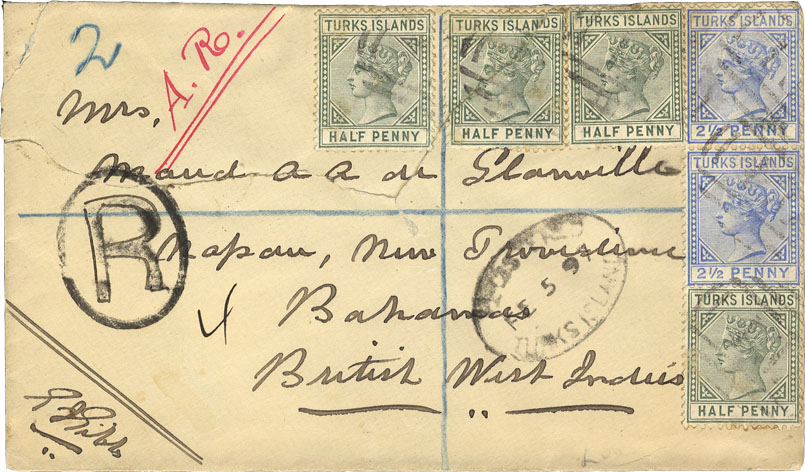 2
A. R.
TURKS ISLANDS
HALF PENNY
TURKS ISLANDS
HALF PENNY
TURKS ISLANDS
HALF PENNY
TURKS ISLANDS
2½ PENNY
TURKS ISLANDS
2½ PENNY
TURKS ISLANDS
HALF PENNY
Mrs,
Maud A A de Glanville
R
Napau, New Providence
4 Bahamas
British West Indies
DE 5 9